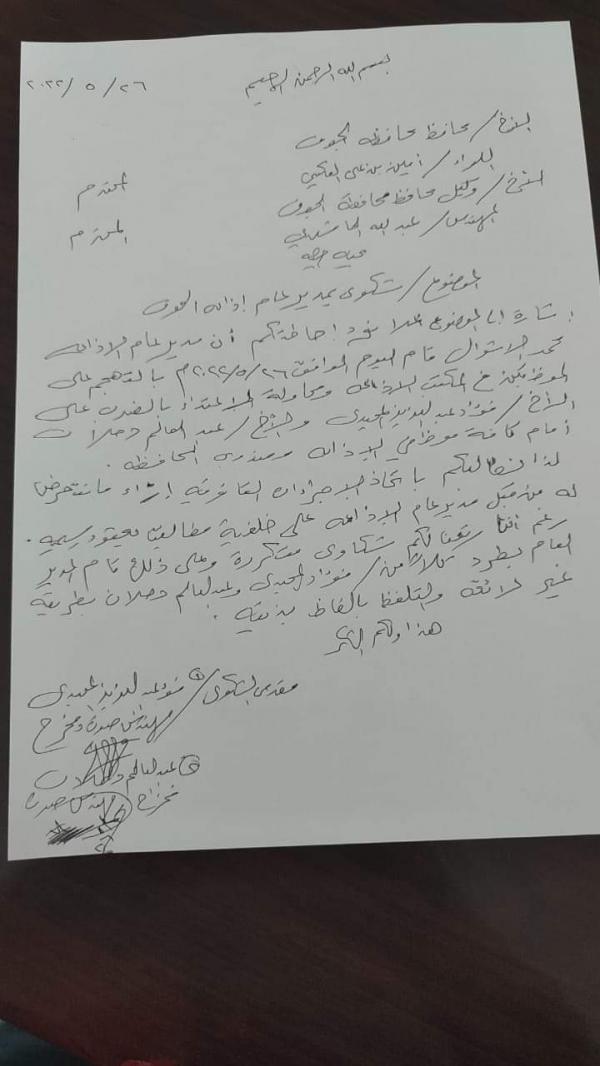 بسم الله الرحمن الرحيم
٢٠٢٢/٥/٢٦
الأخ/ محافظ محافظة الجوف
اللواء/ أمين بن علي العكيمي المحترم
الأخ/ وكيل محافظ محافظة الجوف
المهندس/ عبدالله الحاشدي المحترم
تحية طيبة
الموضوع/ شكوى بمدير عام إذاعة الجوف
إشارة الى الموضوع اعلاه نود إحاطتكم أن مدير عام الاذاعة
محمد الاشوال قام اليوم الموافق ٢٠٢٢/٥/٢٦م بالتهجم على
الموظفين في المكتب الاذاعة ومحاولة الاعتداء بالضرب على
الأخ/ فؤاد عبدالعزيز المجيدي والأخ/ عبدالعالم دحلان
أمام كافة موظفي الاذاعة ومندوبي المحافظة.
لذا نطالبكم باتخاذ الاجراءات القانونية إزاء ما نتعرض
له من قبل مدير عام الاذاعة على خلفية مطالبنا بعقود رسمية.
رغم أننا رفعنا لكم شكاوى متكررة وعلى ذلك قام المدير
العام بطرد كلاً من/ فؤاد المجيدي وعبدالعالم دحلان بطريقة
غير لائقة والتلفظ بالفاظ بذيئة.
هذا ولكم الشكر
مقدمي الشكوى/ ① فؤاد عبدالعزيز المجيدي
مهندس صوت ومخرج
② عبدالعالم دحلان
مهندس صوت